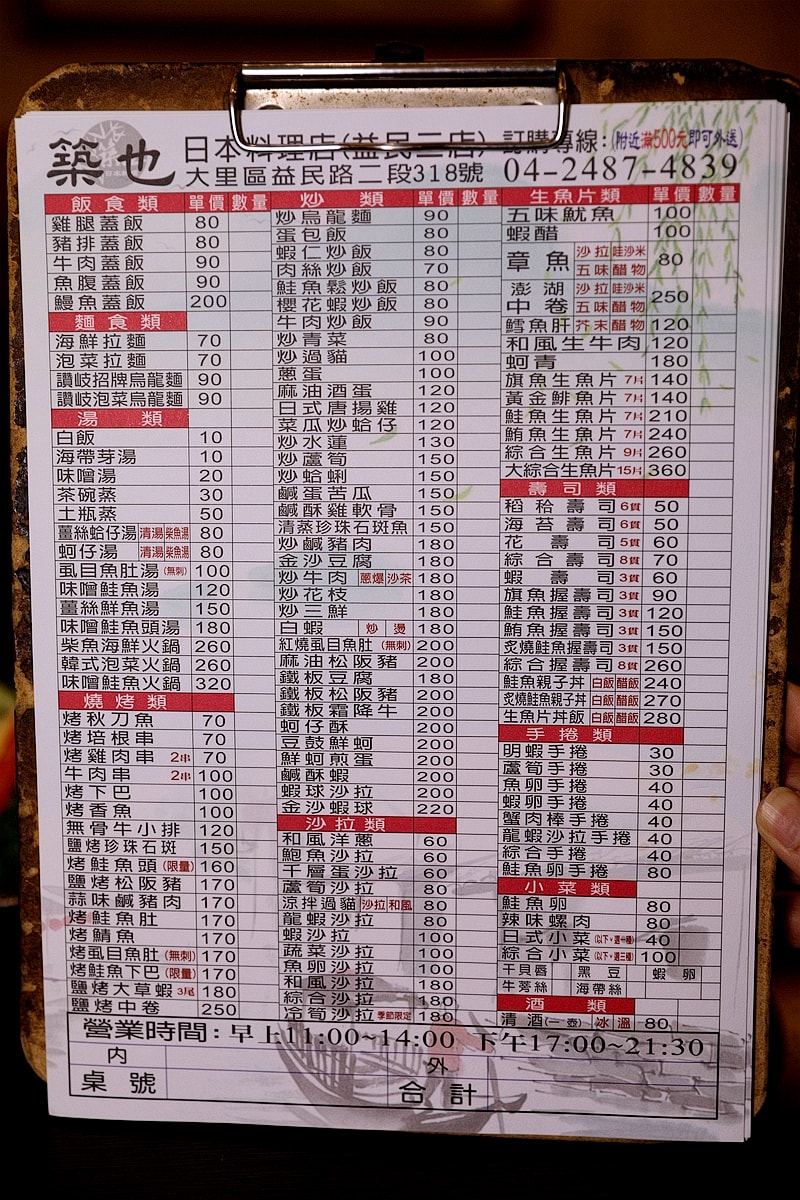 築也 日本料理店(益民二店) 訂購專線:(附近滿500元即可外送)
大里區益民路二段318號 04-2487-4839
飯食類 單價 數量
雞腿蓋飯 80
豬排蓋飯 80
牛肉蓋飯 90
魚腹蓋飯 90
鰻魚蓋飯 200
麵食類
海鮮拉麵 70
泡菜拉麵 70
讚岐招牌烏龍麵 90
讚岐泡菜烏龍麵 90
湯類
白飯 10
海帶芽湯 10
味噌湯 20
茶碗蒸 30
土瓶蒸 50
薑絲蛤仔湯 清湯 柴魚湯 80
蚵仔湯 清湯 柴魚湯 80
虱目魚肚湯(無刺) 100
味噌鮭魚湯 120
薑絲鮮魚湯 150
味噌鮭魚頭湯 180
柴魚海鮮火鍋 260
韓式泡菜火鍋 260
味噌鮭魚火鍋 320
燒烤類
烤秋刀魚 70
烤培根串 70
烤雞肉串 2串 70
牛肉串 2串 100
烤下巴 100
烤香魚 100
無骨牛小排 120
鹽烤珍珠石斑 150
烤鮭魚頭(限量) 160
鹽烤松阪豬 170
蒜味鹹豬肉 170
烤鮭魚肚 170
烤鯖魚 170
烤虱目魚肚(無刺) 170
烤鮭魚下巴(限量) 170
鹽烤大草蝦 3尾 180
鹽烤中卷 250
炒類 單價 數量
炒烏龍麵 90
蛋包飯 80
蝦仁炒飯 80
肉絲炒飯 70
鮭魚鬆炒飯 80
櫻花蝦炒飯 80
牛肉炒飯 90
炒青菜 80
炒過貓 100
蔥蛋 100
麻油酒蛋 120
日式唐揚雞 120
菜瓜炒蛤仔 120
炒水蓮 130
炒蘆筍 150
炒蛤蜊 150
鹹蛋苦瓜 150
鹹酥雞軟骨 150
清蒸珍珠石斑魚 150
炒鹹豬肉 180
金沙豆腐 180
炒牛肉 蔥爆 沙茶 180
炒花枝 180
炒三鮮 180
白蝦 炒 燙 180
紅燒虱目魚肚(無刺) 200
麻油松阪豬 200
鐵板豆腐 180
鐵板松阪豬 200
鐵板霜降牛 200
蚵仔酥 200
豆鼓鮮蚵 200
鮮蚵煎蛋 200
鹹酥蝦 200
蝦球沙拉 200
金沙蝦球 220
沙拉類
和風洋蔥 60
鮑魚沙拉 60
千層蛋沙拉 60
蘆筍沙拉 80
涼拌過貓 沙拉 和風 80
龍蝦沙拉 80
蝦沙拉 100
蔬菜沙拉 100
魚卵沙拉 100
和風沙拉 180
綜合沙拉 180
冷筍沙拉 季節限定 180
生魚片類 單價 數量
五味魷魚 100
蝦醋 100
章魚 沙拉 哇沙米 五味 醋物 80
澎湖中卷 沙拉 哇沙米 五味 醋物 250
鱈魚肝 芥末 醋物 120
和風生牛肉 120
蚵青 180
旗魚生魚片 7片 140
黃金鯡魚片 7片 140
鮭魚生魚片 7片 210
鮪魚生魚片 7片 240
綜合生魚片 9片 260
大綜合生魚片 15片 360
壽司類
稻秴壽司 6貫 50
海苔壽司 6貫 50
花壽司 5貫 60
綜合壽司 8貫 70
蝦壽司 3貫 60
旗魚握壽司 3貫 90
鮭魚握壽司 3貫 120
鮪魚握壽司 3貫 150
炙燒鮭魚握壽司 3貫 150
綜合握壽司 8貫 260
鮭魚親子丼 白飯 醋飯 240
炙燒鮭魚親子丼 白飯 醋飯 270
生魚片丼飯 白飯 醋飯 280
手捲類
明蝦手捲 30
蘆筍手捲 30
魚卵手捲 40
蝦卵手捲 40
蟹肉棒手捲 40
龍蝦沙拉手捲 40
綜合手捲 40
鮭魚卵手捲 80
小菜類
鮭魚卵 80
辣味螺肉 80
日式小菜 40
綜合小菜 100
干貝唇 黑豆 蝦卵
牛蒡絲 海帶絲
酒類
清酒(一壺) 冰 溫 80
營業時間:早上11:00~14:00 下午17:00~21:30
內 外
桌號 合計